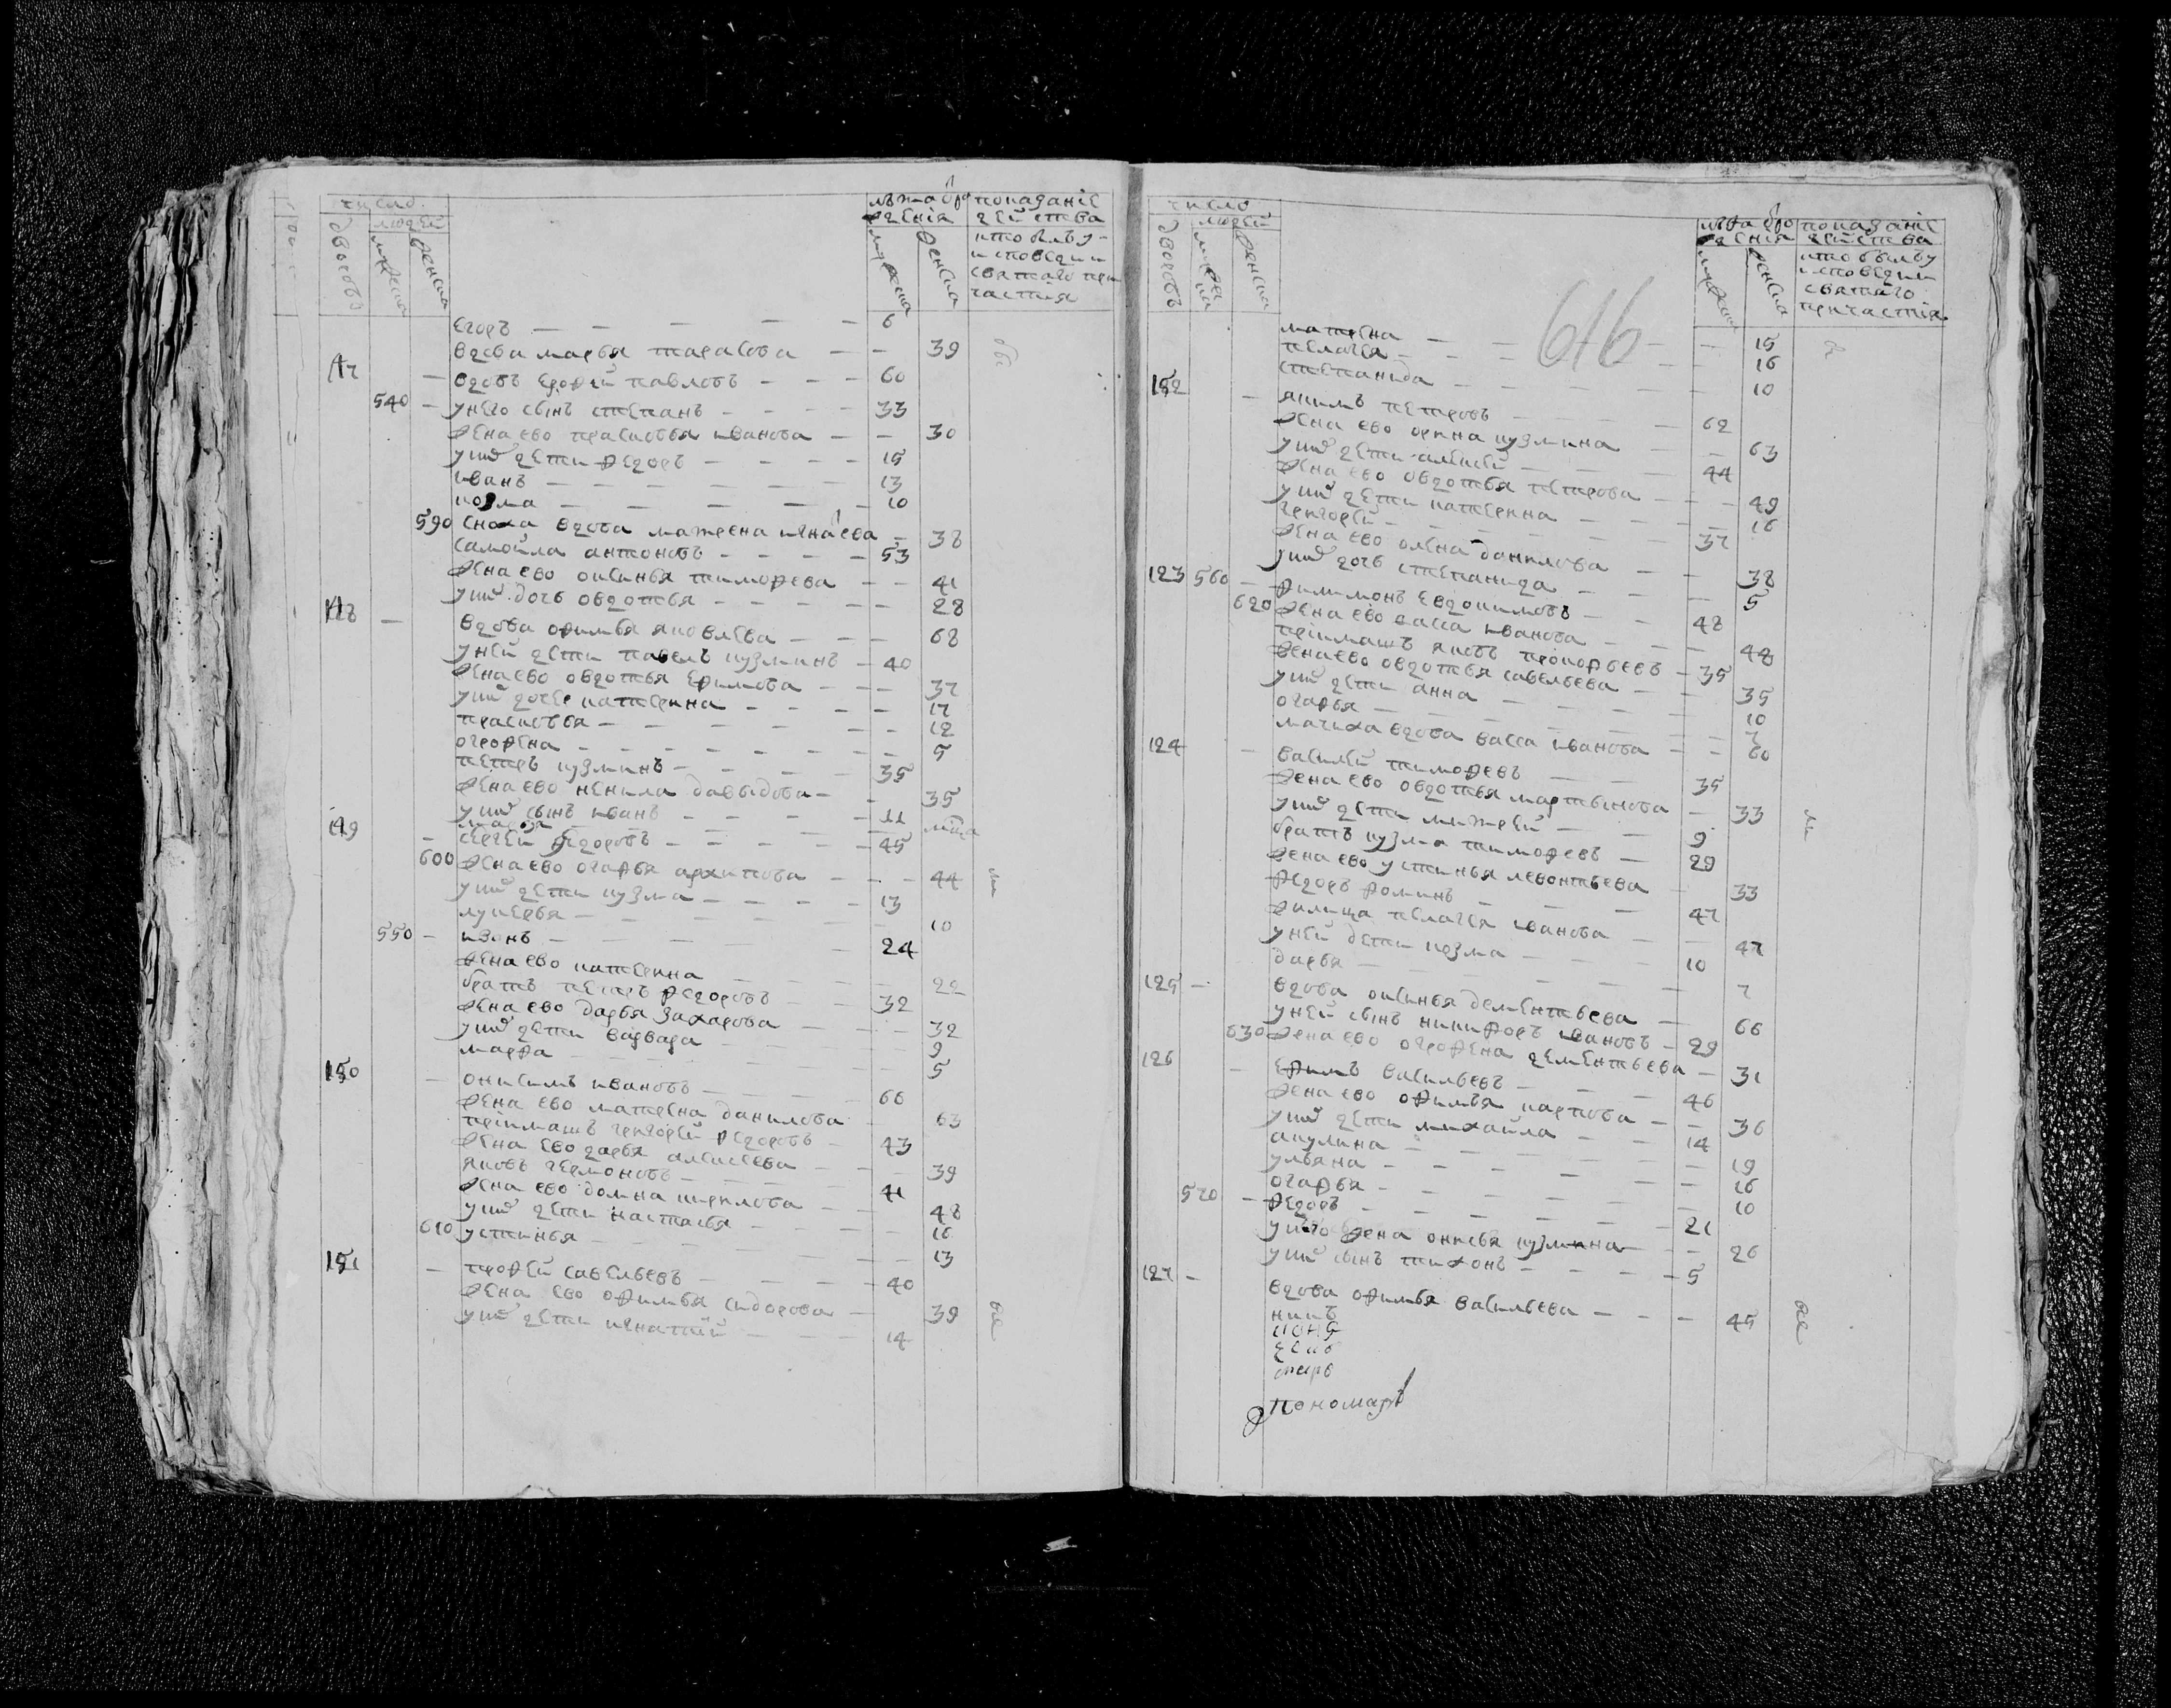 число.
людей
дворовъ
мужеска
женска
лѣта ѿ рождения
мужеска
женска
показаніе действа
кто былъ у
исповеди и
святаго при
частия
егоръ — — — — — 6
вдова марья тарасова — — 39
вдовъ ерофей павловъ — — — 60
540 — у него сынъ степанъ — — — — 33
жена ево прасковья иванова — — 30
у них дети федоръ — — — — 15
иванъ — — — — — — 13
козма — — — — — 10
590 сноха вдова матрена игнаева — 38
самойла антоновъ — — — — 53
жена ево оксинья тимофева — — 41
у них дочь овдотья — — — — — 28
вдова офимья яковлева — — — 68
у ней дети павелъ кузминъ — 40
жена ево овдотья ефимова — — — 37
у них дочер катерина — — — — 17
прасковья — — — — — — 12
огрофена — — — — — — — 5
петръ кузминъ — — — — 35
жена ево ненила давыдова — — 35
у них сынъ иванъ — — — — 11
марья
сергей федоровъ — — — — — 45
600 жена ево огафья архипова — — — 44
у них дети кузма — — — — 13
лукерья — — — — — — 10
550 — иванъ — — — — 24
жена ево катерина — — — — 22
братъ петръ федоровъ — — 32
жена ево дарья захарова — — — 32
у них дети варвара — — — 9
марфа — — — — — — 5
150 — онисимъ ивановъ — — — — 66
жена ево матрена данилова — 63
пріимашъ григорей федоровъ — 43
жена ево дарья алексеева — — 39
яковъ — — — — 41
жена ево домна кирилова — — 48
у них дети настасья — — — 16
610 устинья — — — — — — 13
151 — профей савельевъ — — — — 40
жена ево офимья сидорова — 39
у них дети игнатий — — — 14
число
людей
дворовъ
женска
лѣта ѿ рождения
женска
показаніе действа
кто былъ у
исповеди и
святаго
причастия
616
матрена — — — — — 15
пелагея — — — — — 16
степанида — — — — — 10
152 — якимъ петровъ — — — — 62
жена ево орина кузмина — — 63
у них дети алексей — — — 44
жена ево овдотья петрова — — — 49
у них дети катерина — — — — 16
григорей — — — — — — 37
жена ево олена данилова — — 38
у них дочь степанида — — — — 5
123 560 — филимонъ евдокимовъ — — 48
620 жена ево васса иванова — — — 48
пріимашъ яковъ прокофьевъ — 35
жена ево овдотья савельева — — 35
у них дети анна — — — — — 10
огафья — — — — — — — 7
мачиха вдова васса иванова — — 60
124 — василей тимофевъ — — 35
жена ево овдотья мартынова — 33
у них дети матфей — — 9
братъ кузма тимофевъ — 29
жена ево устинья левонтьева — 33
федоръ фоминъ — — — 47
жилица пелагея иванова — — 47
у ней дети козма — — — 10
дарья — — — — — — 7
125 — вдова оксинья дементьева — 66
у ней сынъ никифоръ ивановъ — 29
630 жена ево огрофена дементьева — 31
126 — ефимъ васильевъ — — — 46
жена ево офимья карпова — — 36
у них дети михайла — — 14
акулина — — — — — — 19
ульяна — — — — — — 16
огафья — — — — — — 10
570 — федоръ — — — — — — 21
у него жена онисья кузмина — — 26
у них сынъ тихонъ — — — — 5
127 — вдова офимья васильева — — — 45
пономарь